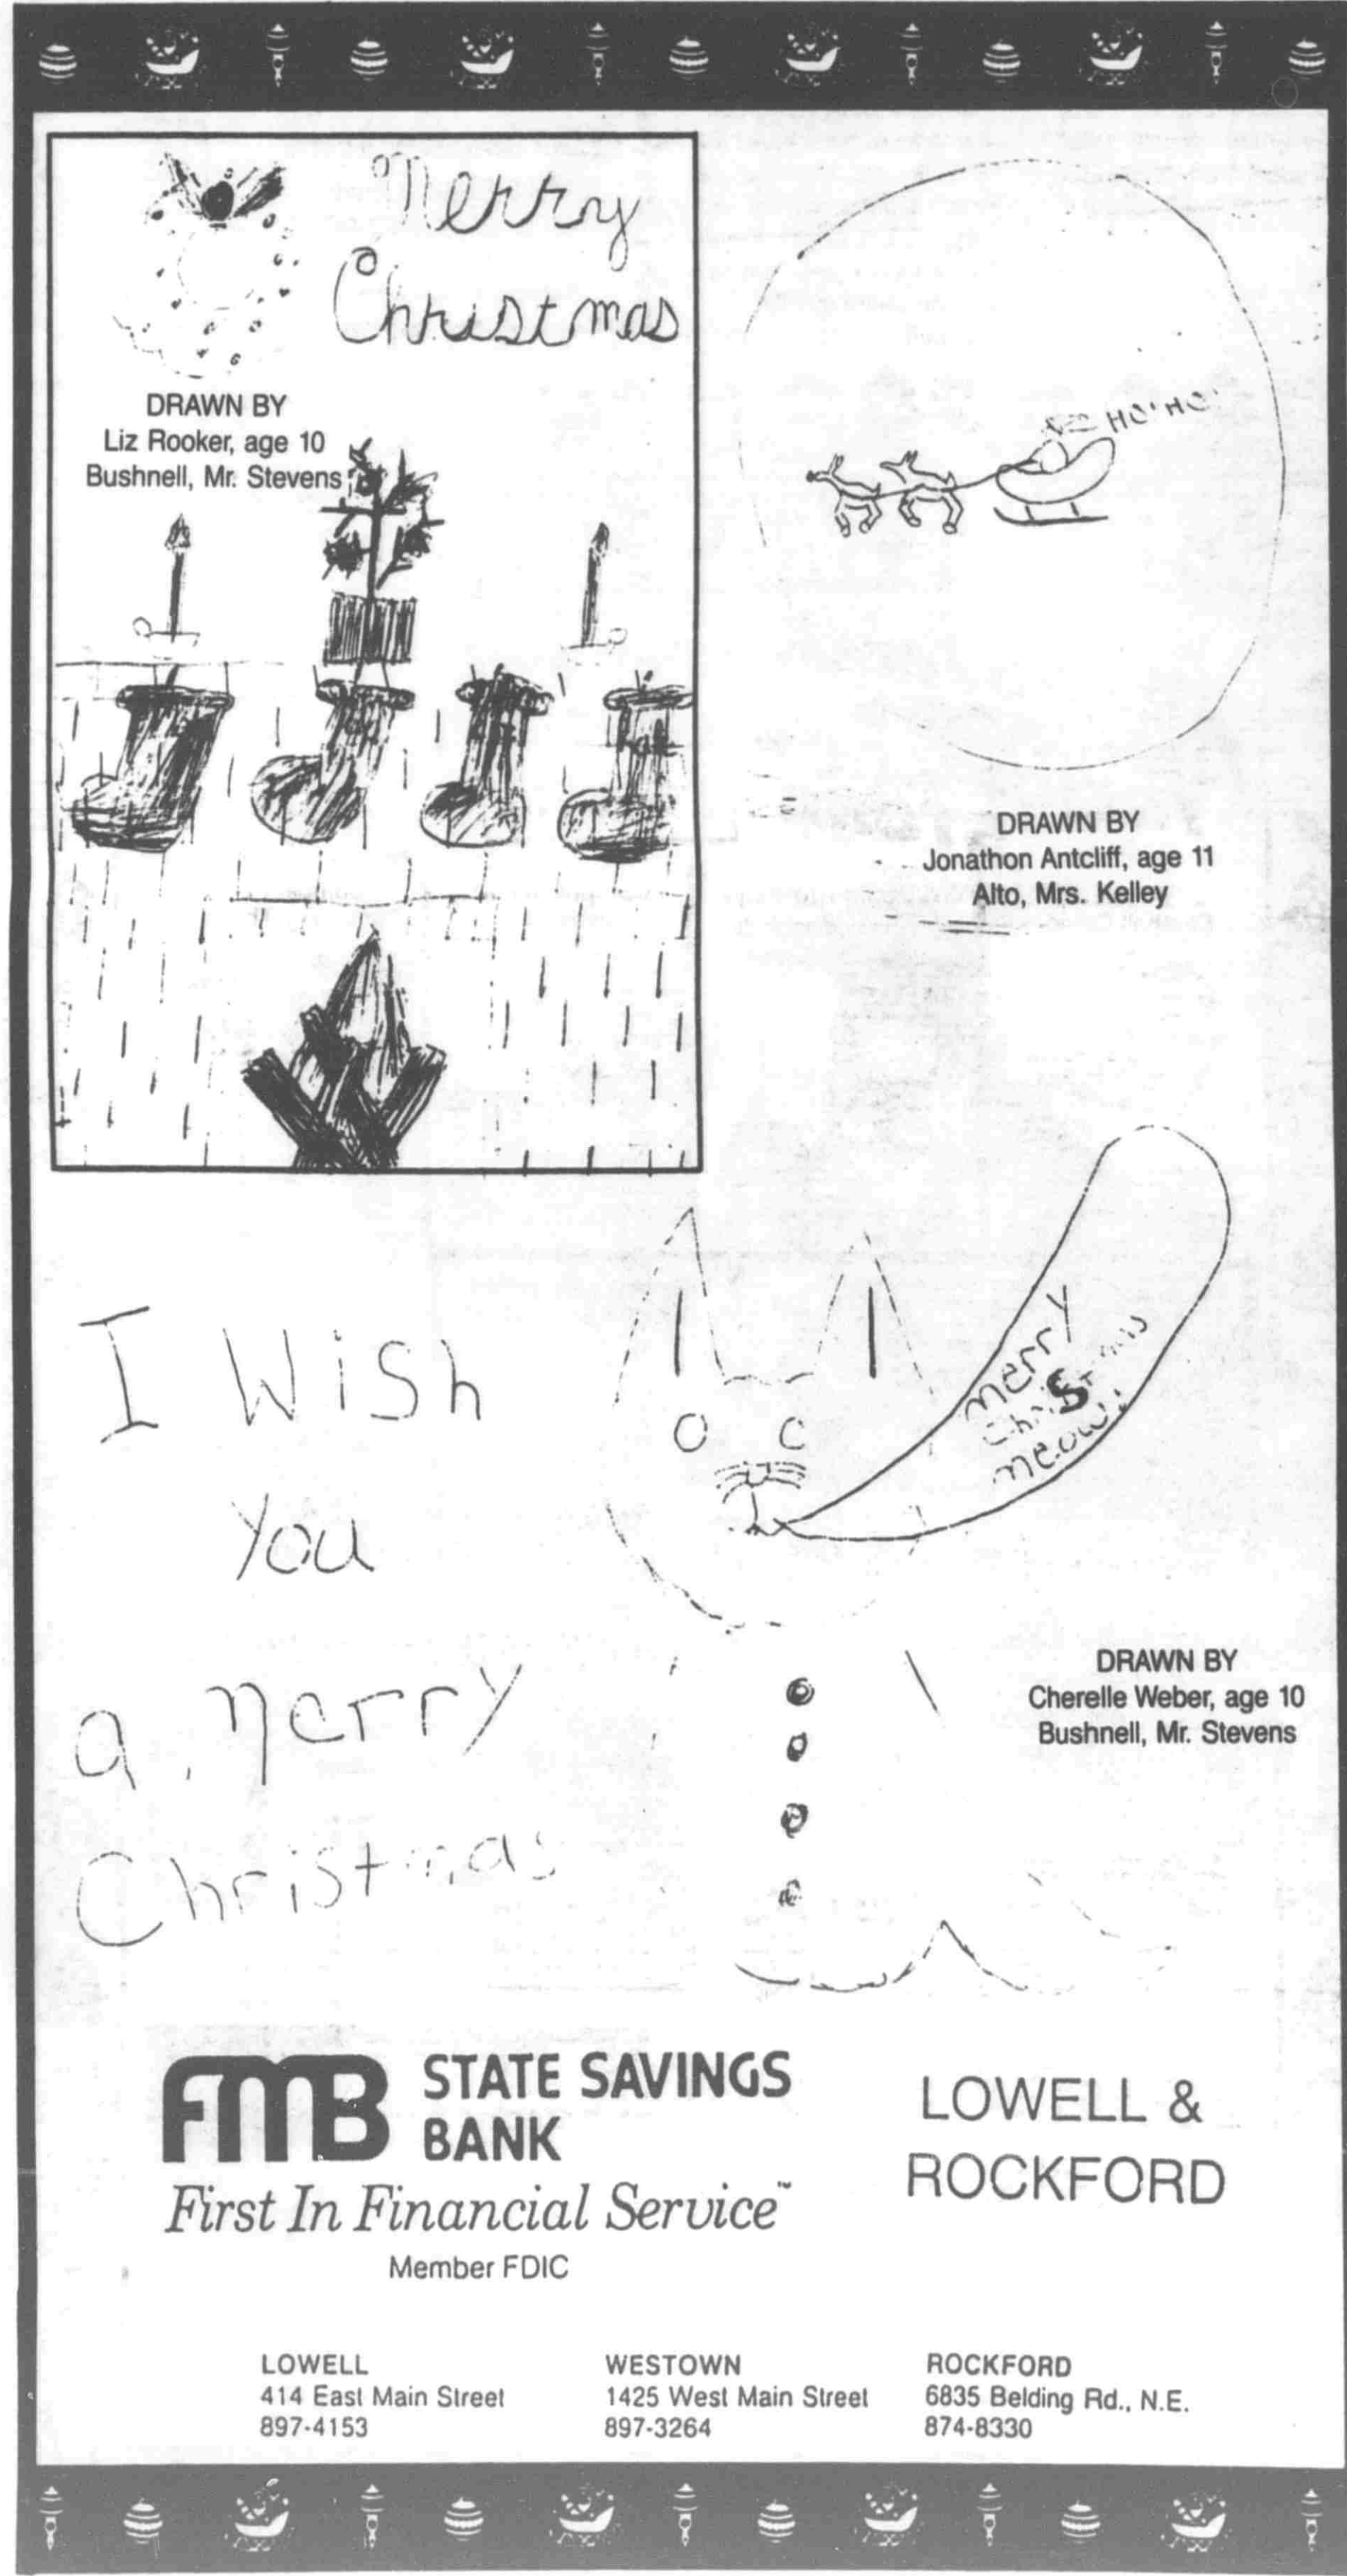 Merry
Christmas
DRAWN BY
Liz Rooker, age 10
Bushnell, Mr. Stevens
HO' HO'
DRAWN BY
Jonathon Antcliff, age 11
Alto, Mrs. Kelley
I Wish
You
a Merry
Christmas
merry
Christmas
meow!
DRAWN BY
Cherelle Weber, age 10
Bushnell, Mr. Stevens
FMB STATE SAVINGS
BANK
First In Financial Service™
Member FDIC
LOWELL &
ROCKFORD
LOWELL
414 East Main Street
897-4153
WESTOWN
1425 West Main Street
897-3264
ROCKFORD
6835 Belding Rd., N.E.
874-8330